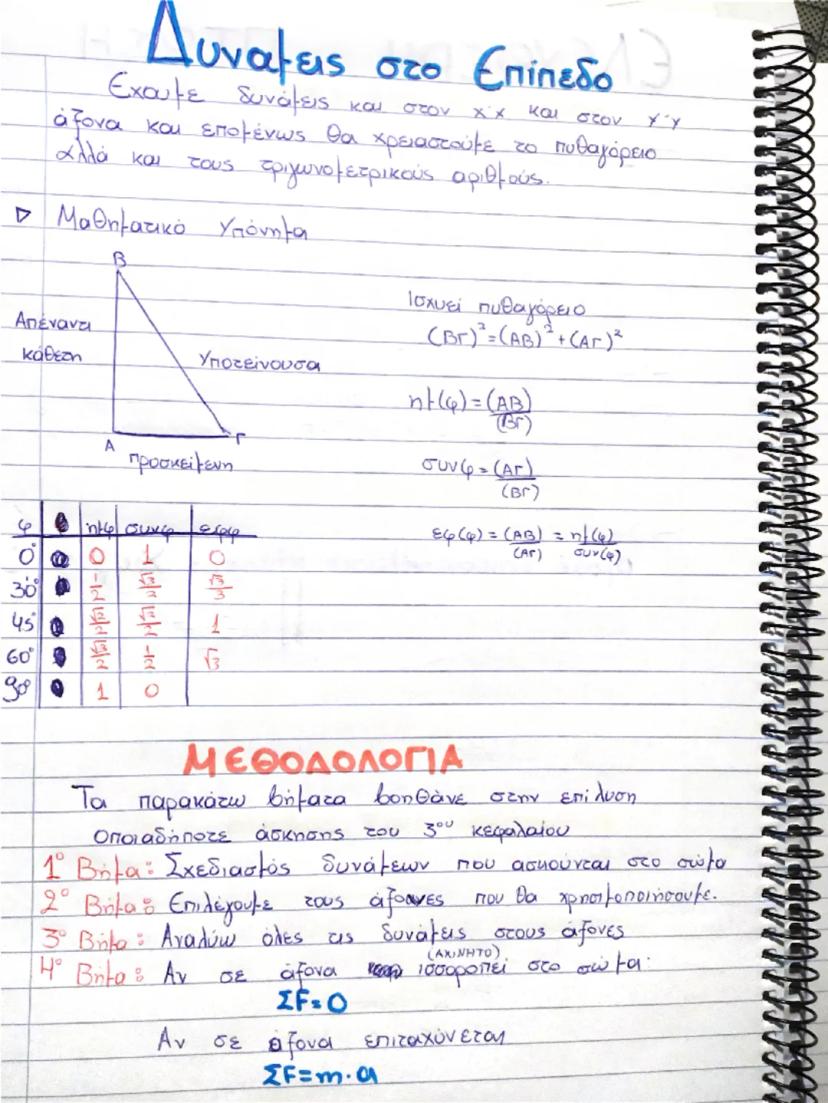 Δυναμεις στο Επίπεδο
Εχουμε δυνάμεις και στον x'x και στον y'y
άξονα και επομένως θα χρειαστούμε το πυθαγόρειο
αλλά και τους τριγωνομετρικούς αριθμούς.
▷ Μαθηματικό Υπόνημα
Β
Απέναντι
κάθετη
Υποτείνουσα
Α
Γ
προσκείμενη
Ισχυει πυθαγόρειο
(ΒΓ)²=(ΑΒ)²+(ΑΓ)²
ημ(φ)=(ΑΒ)/(ΒΓ)
συνφ=(ΑΓ)/(ΒΓ)
εφ(φ)=(ΑΒ)/(ΑΓ)=ημ(φ)/συν(φ)
φ ημφ συνφ εφφ
0° 0 1 0
30° 1/2 √3/2 √3/3
45° √2/2 √2/2 1
60° √3/2 1/2 √3
90° 1 0
ΜΕΘΟΔΟΛΟΓΙΑ
Τα παρακάτω βήματα βοηθάνε στην επίλυση
οποιαδήποτε άσκησης του 3ου κεφαλαίου
1° Βήμα: Σχεδιασμός δυνάμεων που ασκούνται στο σώμα
2° Βήμα: Επιλέγουμε τους άξονες που θα χρησιμοποιήσουμε.
3° Βήμα: Αναλύω όλες τις δυνάμεις στους άξονες
(ΑΚΙΝΗΤΟ)
4° Βήμα: Αν σε άξονα ισσοροπεί στο σώμα:
ΣF=0
Αν σε άξονα επιταχύνεται
ΣF=m·a